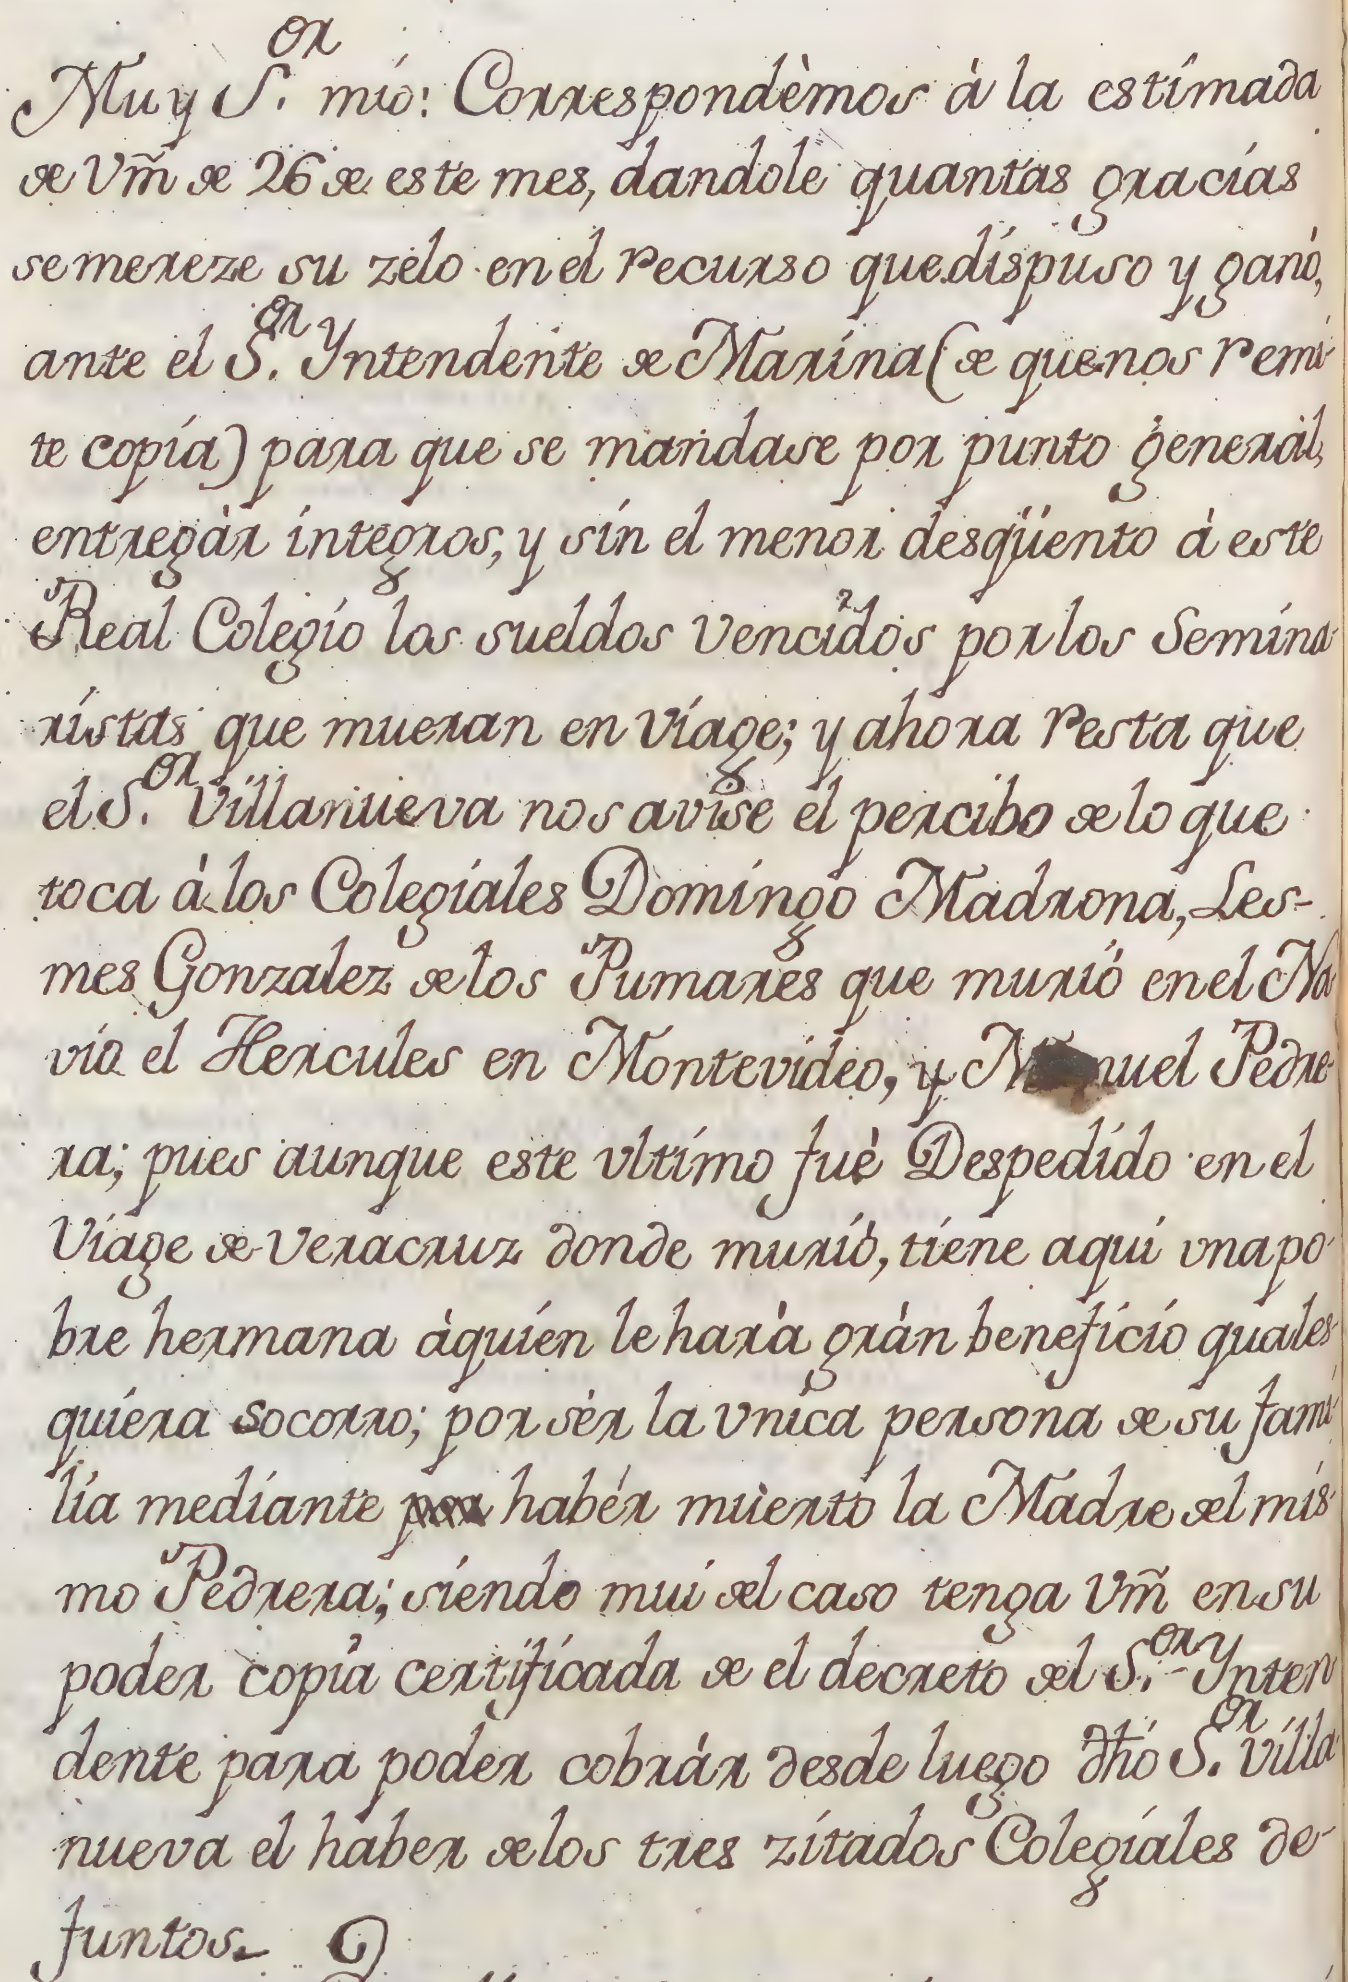 Muy S.or mío: Correspondèmos à la estímada
de Vm̃ de 26 de este mes, dandole quantas gracías
se mereze su zelo en el recurso que díspuso y ganò,
ante el S.or Yntendente de Marína (de que nos remi
te copía) para que se mandase por punto general,
entregàr íntegros, y sín el menor desqüento à este
Real Colegío los sueldos vencídos por los Semína
rístas que mueran en víage; y ahora resta que
el S.or Víllanueva nos avíse el percibo de lo que
toca à los Colegíales Domíngo Madrona, Les-
mes Gonzalez de los Pumares que muríò en el Na
vío el Hercules en Montevídeo, y Manuel Pedre-
ra; pues aunque este vltímo fuè Despedído en el
Víage de Veracruz donde muríò, tíene aquí vna po
bre hermana àquíen le harà gràn benefícío quales
quíera socorro; por sèr la vníca persona de su famí
lía medíante habér muerto la Madre del mís
mo Pedrera; síendo muí del caso tenga Vm̃ en su
poder copía certífícada de el decreto del S.or Ynten
dente para poder cobràr desde luego dhó S.or Vílla
nueva el haber de los tres zítados Colegíales de-
funtos.